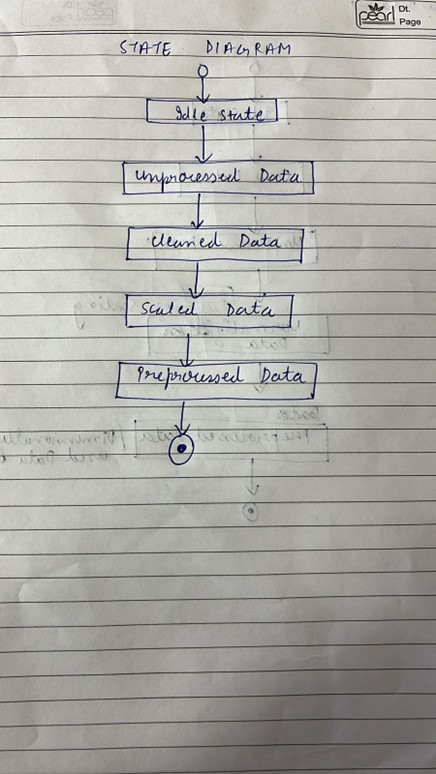 pearl
Dt.
Page
STATE DIAGRAM
Idle state
Unprocessed Data
Cleaned Data
Scaled Data
Preprocessed Data